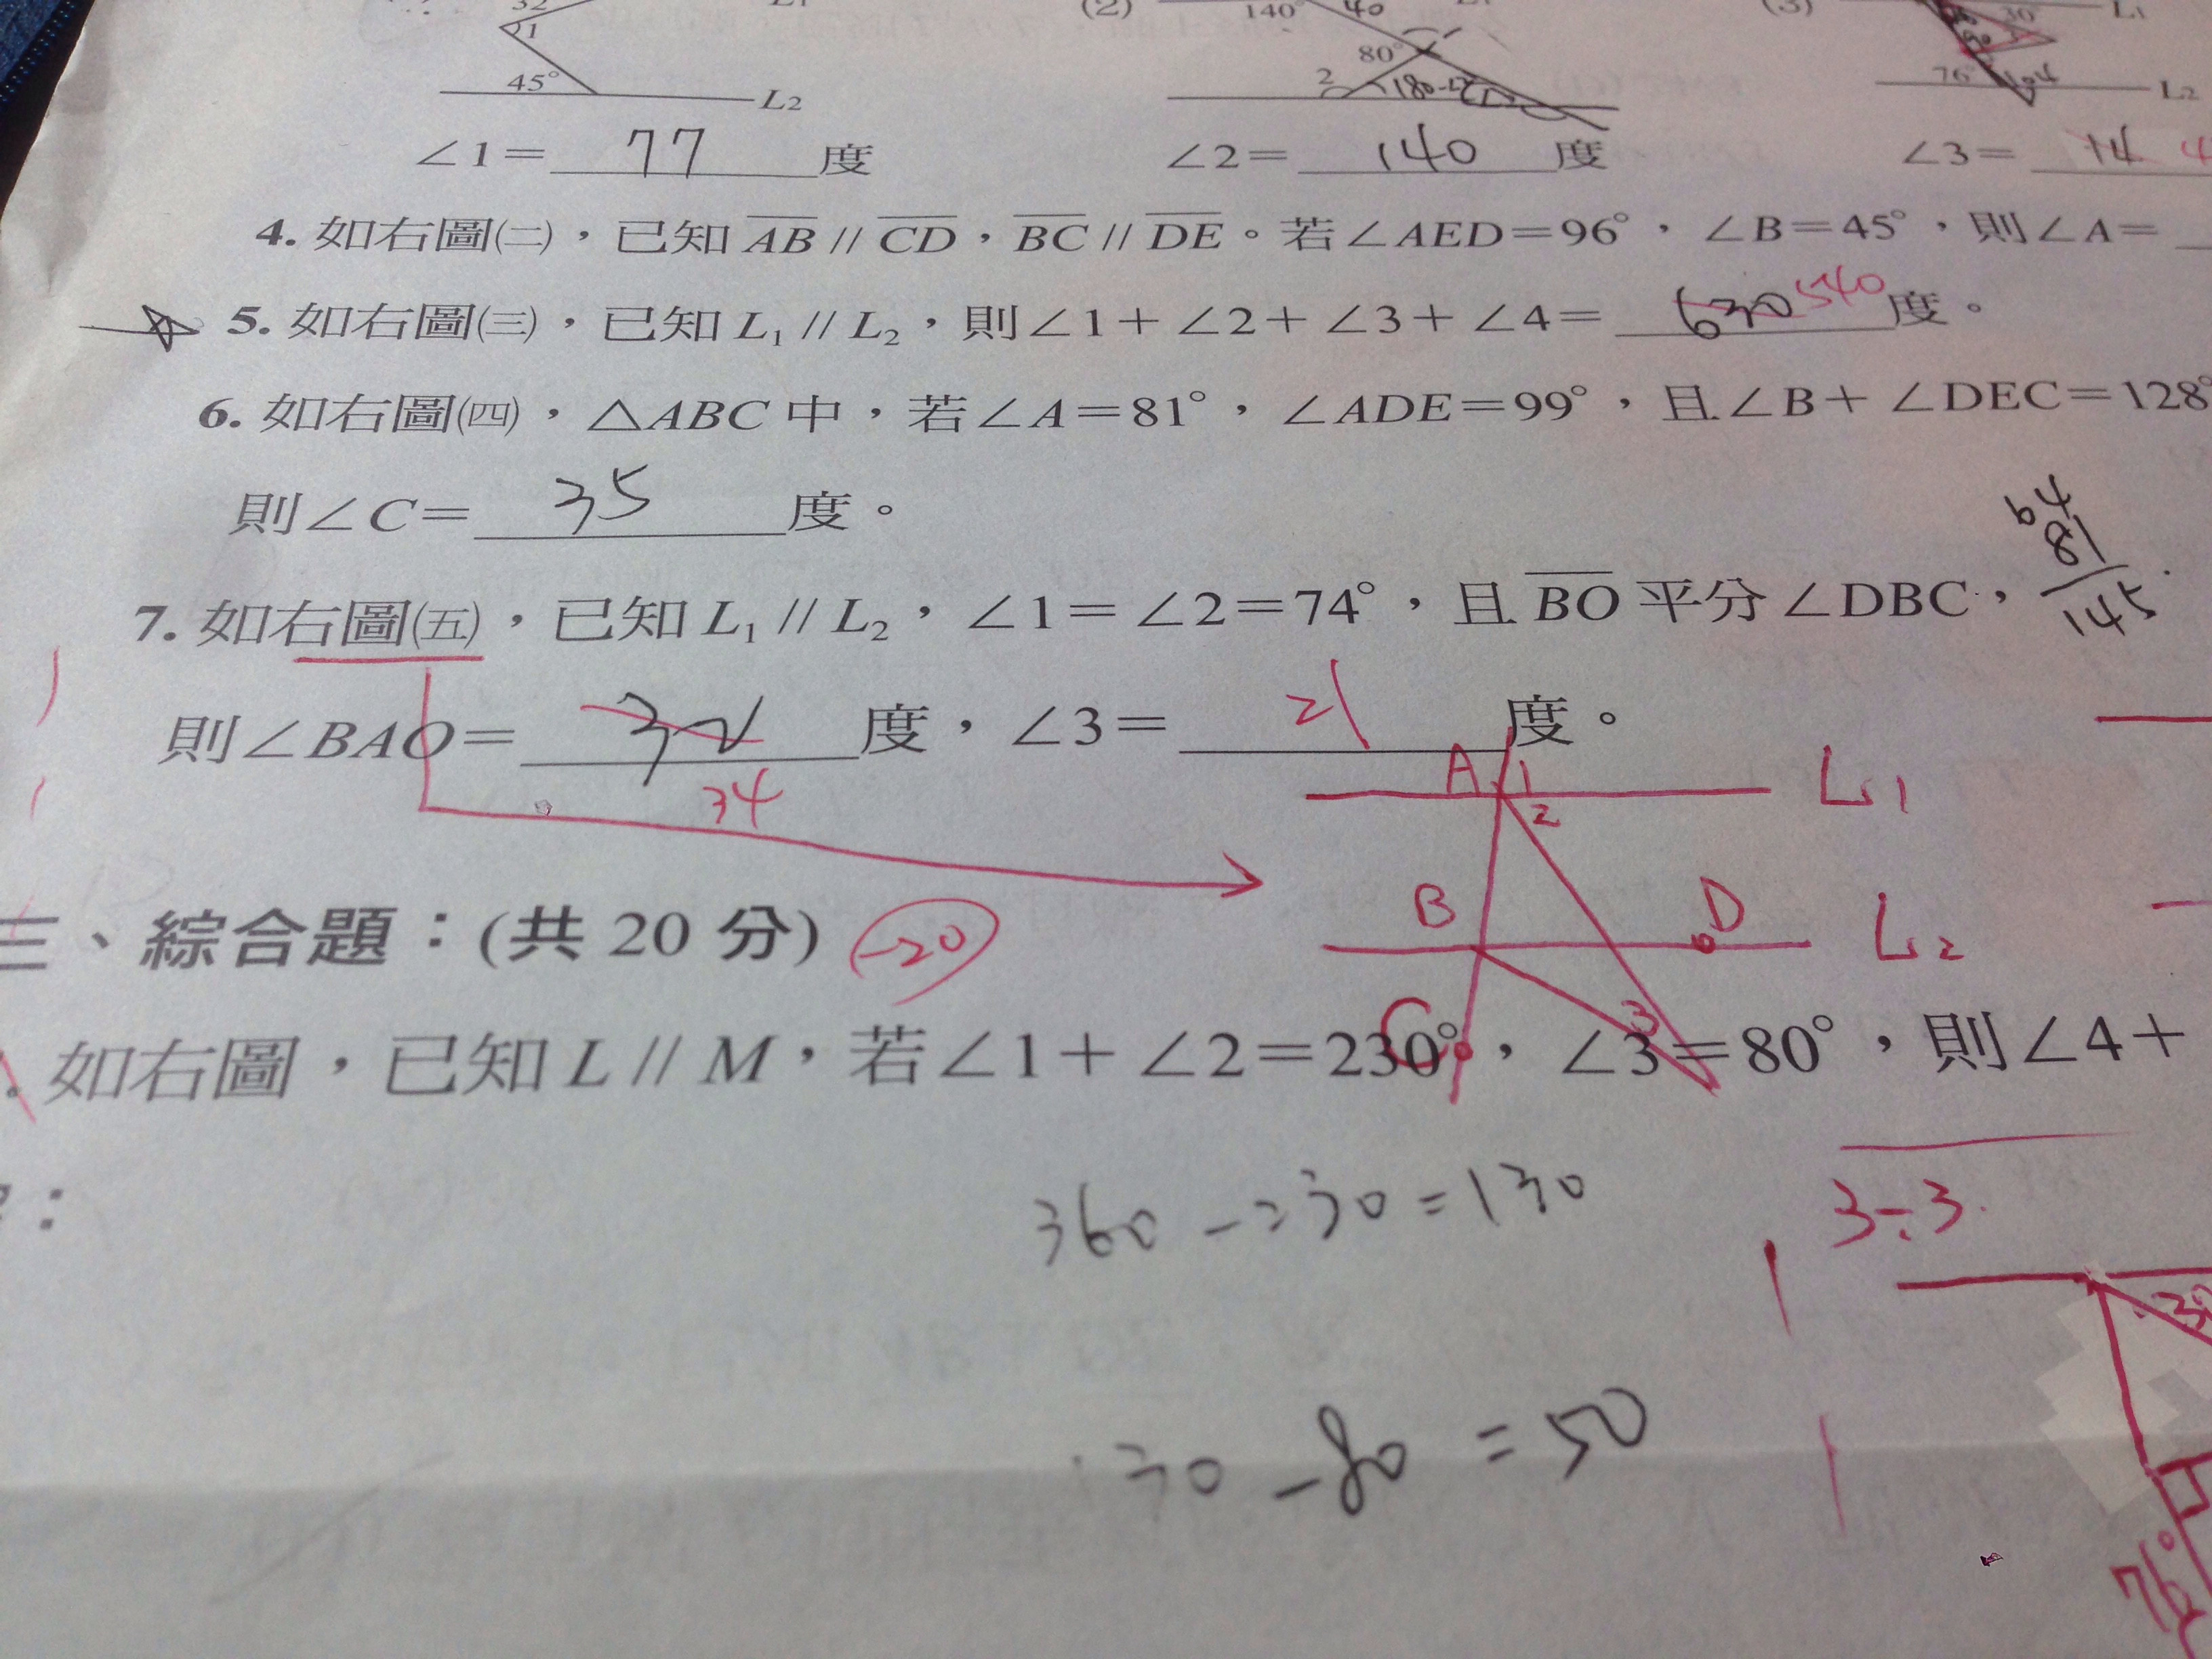 32 L1 (2) 140° 40 L1 (3) 30 L1
1 80°
45° L2 2 180-∠2 76° 104 L2
∠1= 77 度 ∠2= 140 度 ∠3= 14 4
4. 如右圖㈡，已知 AB // CD，BC // DE。若∠AED=96°，∠B=45°，則∠A=
5. 如右圖㈢，已知 L1 // L2，則∠1+∠2+∠3+∠4= 630 540 度。
6. 如右圖㈣，△ABC 中，若∠A=81°，∠ADE=99°，且∠B+∠DEC=128°
則∠C= 35 度。
64
81
145
7. 如右圖㈤，已知 L1 // L2，∠1=∠2=74°，且 BO 平分∠DBC，
則∠BAO= 32 度，∠3= 21 度。
34
A 1 L1
2
B D L2
三、綜合題：(共 20 分) -20
C 3
如右圖，已知 L // M，若∠1+∠2=230°，∠3=80°，則∠4+
：
360-230=130
3-3.
30-80=50
76°